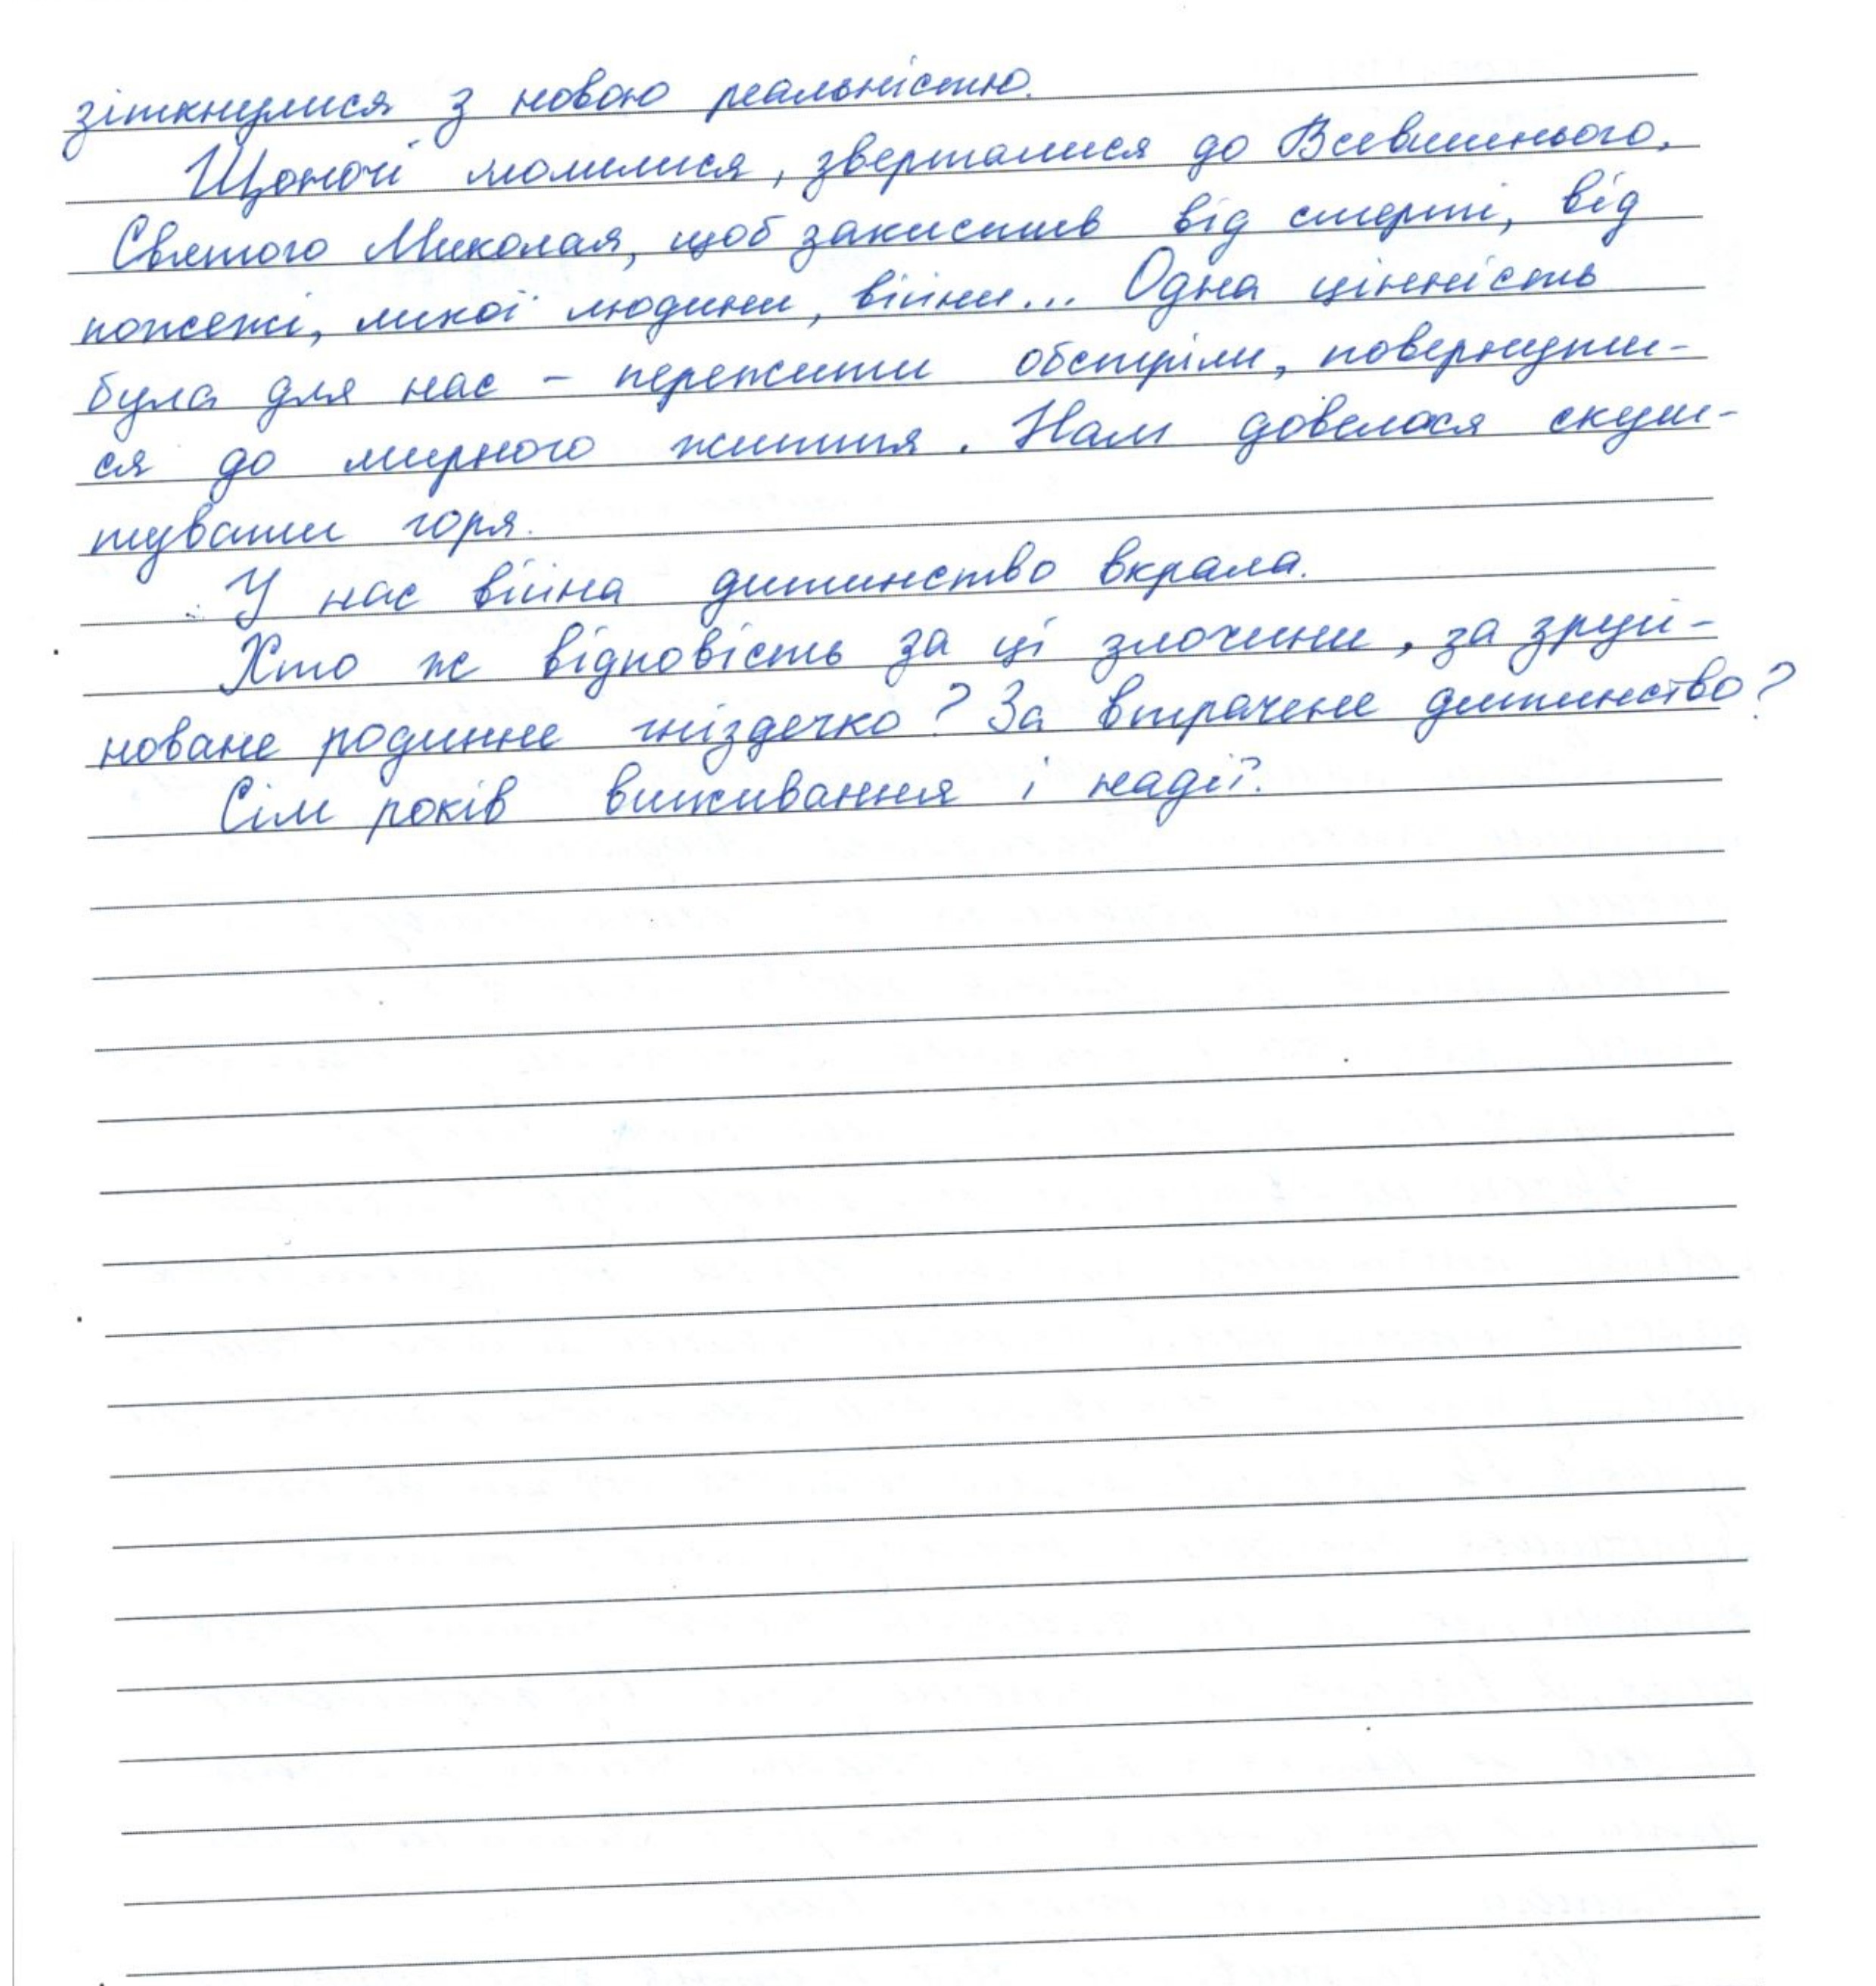 зіткнулися з новою реальністю.
Щоночі молилися, зверталися до Всевишнього,
Святого Миколая, щоб захистив від смерті, від
пожежі, лихої людини, війни... Одна цінність
була для нас – пережити обстріли, повернути-
ся до мирного життя. Нам довелося скуш-
тувати горя.
У нас війна дитинство вкрала.
Хто ж відповість за ці злочини, за зруй-
новане родинне гніздечко? За втрачене дитинство?
Сім років виживання і надії.